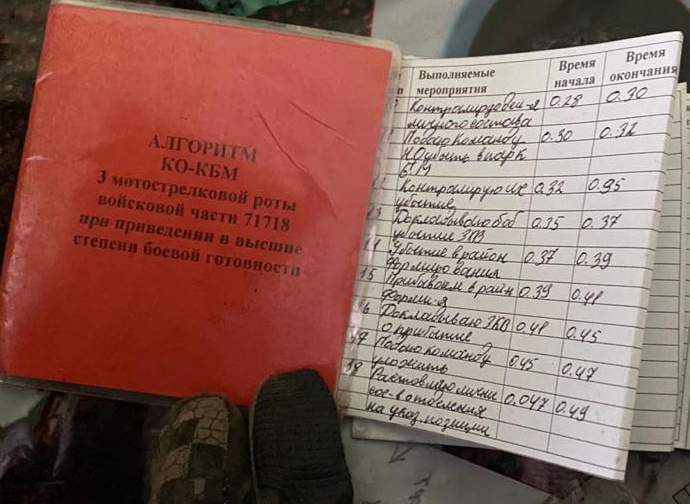 АЛГОРИТМ
КО-КБМ
3 мотострелковой роты
войсковой части 71718
при приведении в высшие
степени боевой готовности
Выполняемые мероприятия
Время начала
Время окончания
Контролирую 0.28 0.30
личного состава
Подаю команду 0.30 0.32
убыть в парк
Контролирую их 0.32 0.95
убытие
13 Докладываю об 0.35 0.37
убытие ЗКВ
14 Убытие в район 0.37 0.39
формирования
15 0.39 0.48
Докладываю ЗКВ 0.48 0.45
о прибытие
Подаю команду 0.45 0.47
уложить
18 0.047 0.49
отделения
на позиции